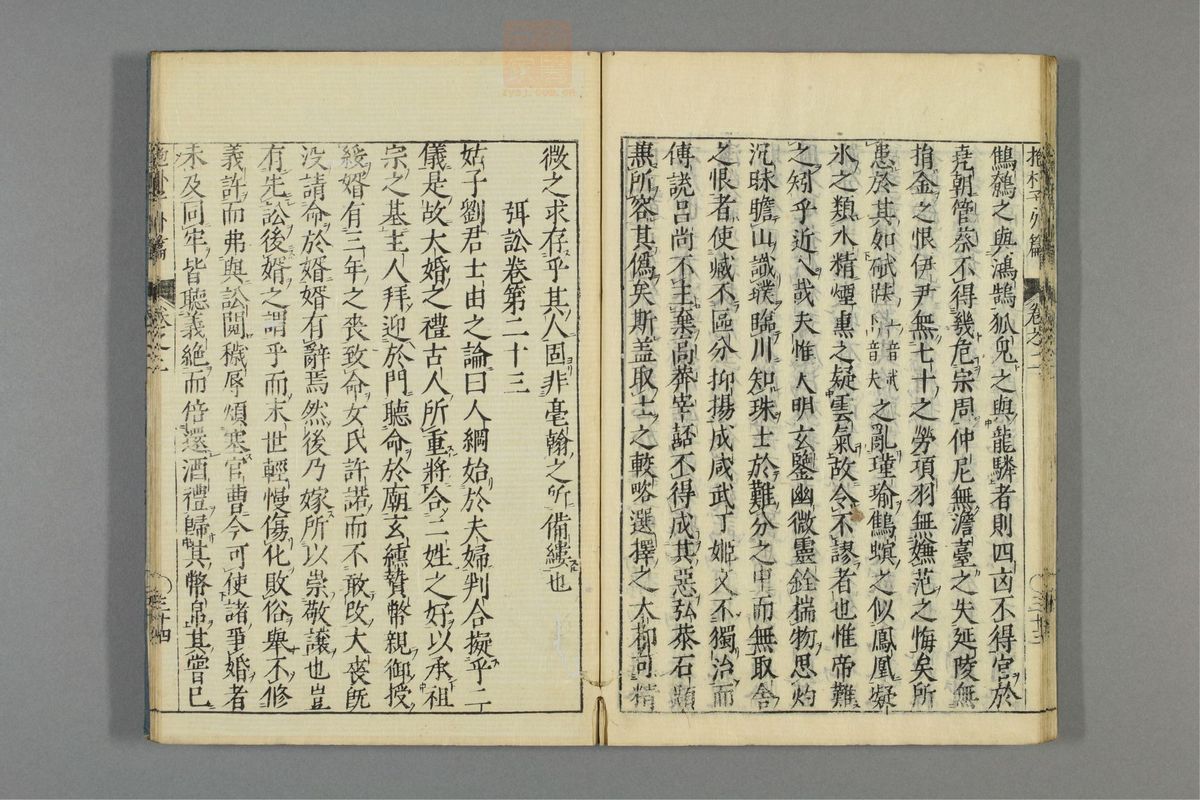 抱朴子外篇 卷之二 三十三
鷦鷯之與鴻鵠狐兔之與龍驎者則四凶不得官於
堯朝管蔡不得幾危宗周仲尼無澹臺之失延陵無
捐金之恨伊尹無七十之勞項羽無嫵范之悔矣所
患於其如碔砆之亂瑾瑜鷦螟之似鳳凰凝
氷之類水精煙熏之疑雲氣故令不謬者也惟帝難
之矧乎近人哉夫惟大明玄鑒幽微靈銓揣物思灼
沉昧瞻山識璞臨川知珠士於難分之中而無取舍
之恨者使臧否區分抑揚咸武丁姬文不獨治而
傅說呂尚不主棄高莽宰嚭不得成其惡弘恭石顯
無所容其僞矣斯蓋取士之較略選擇之大都可精
微之求存乎其人固非毫翰之所備縷也
弭訟卷第二十三
姑子劉君士由之論曰人綱始於夫婦判合擬乎二
儀是故大婚之禮古人所重將合二姓之好以承祖
宗之基主人拜迎於門聽命於廟玄纁贄幣親御授
綏婿有三年之喪致命女氏許諾而不敢改大喪旣
没請命於婿婿有辭焉然後乃嫁所以崇敬讓也豈
有先訟後婿之謂乎而末世輕慢傷化敗俗舉不修
義許而弗與訟鬩穢辱煩塞官曹今可使諸爭婚者
未及同牢皆聽義絶而倍還酒禮歸其幣帛其嘗已
抱朴子外篇 卷之二 三十四